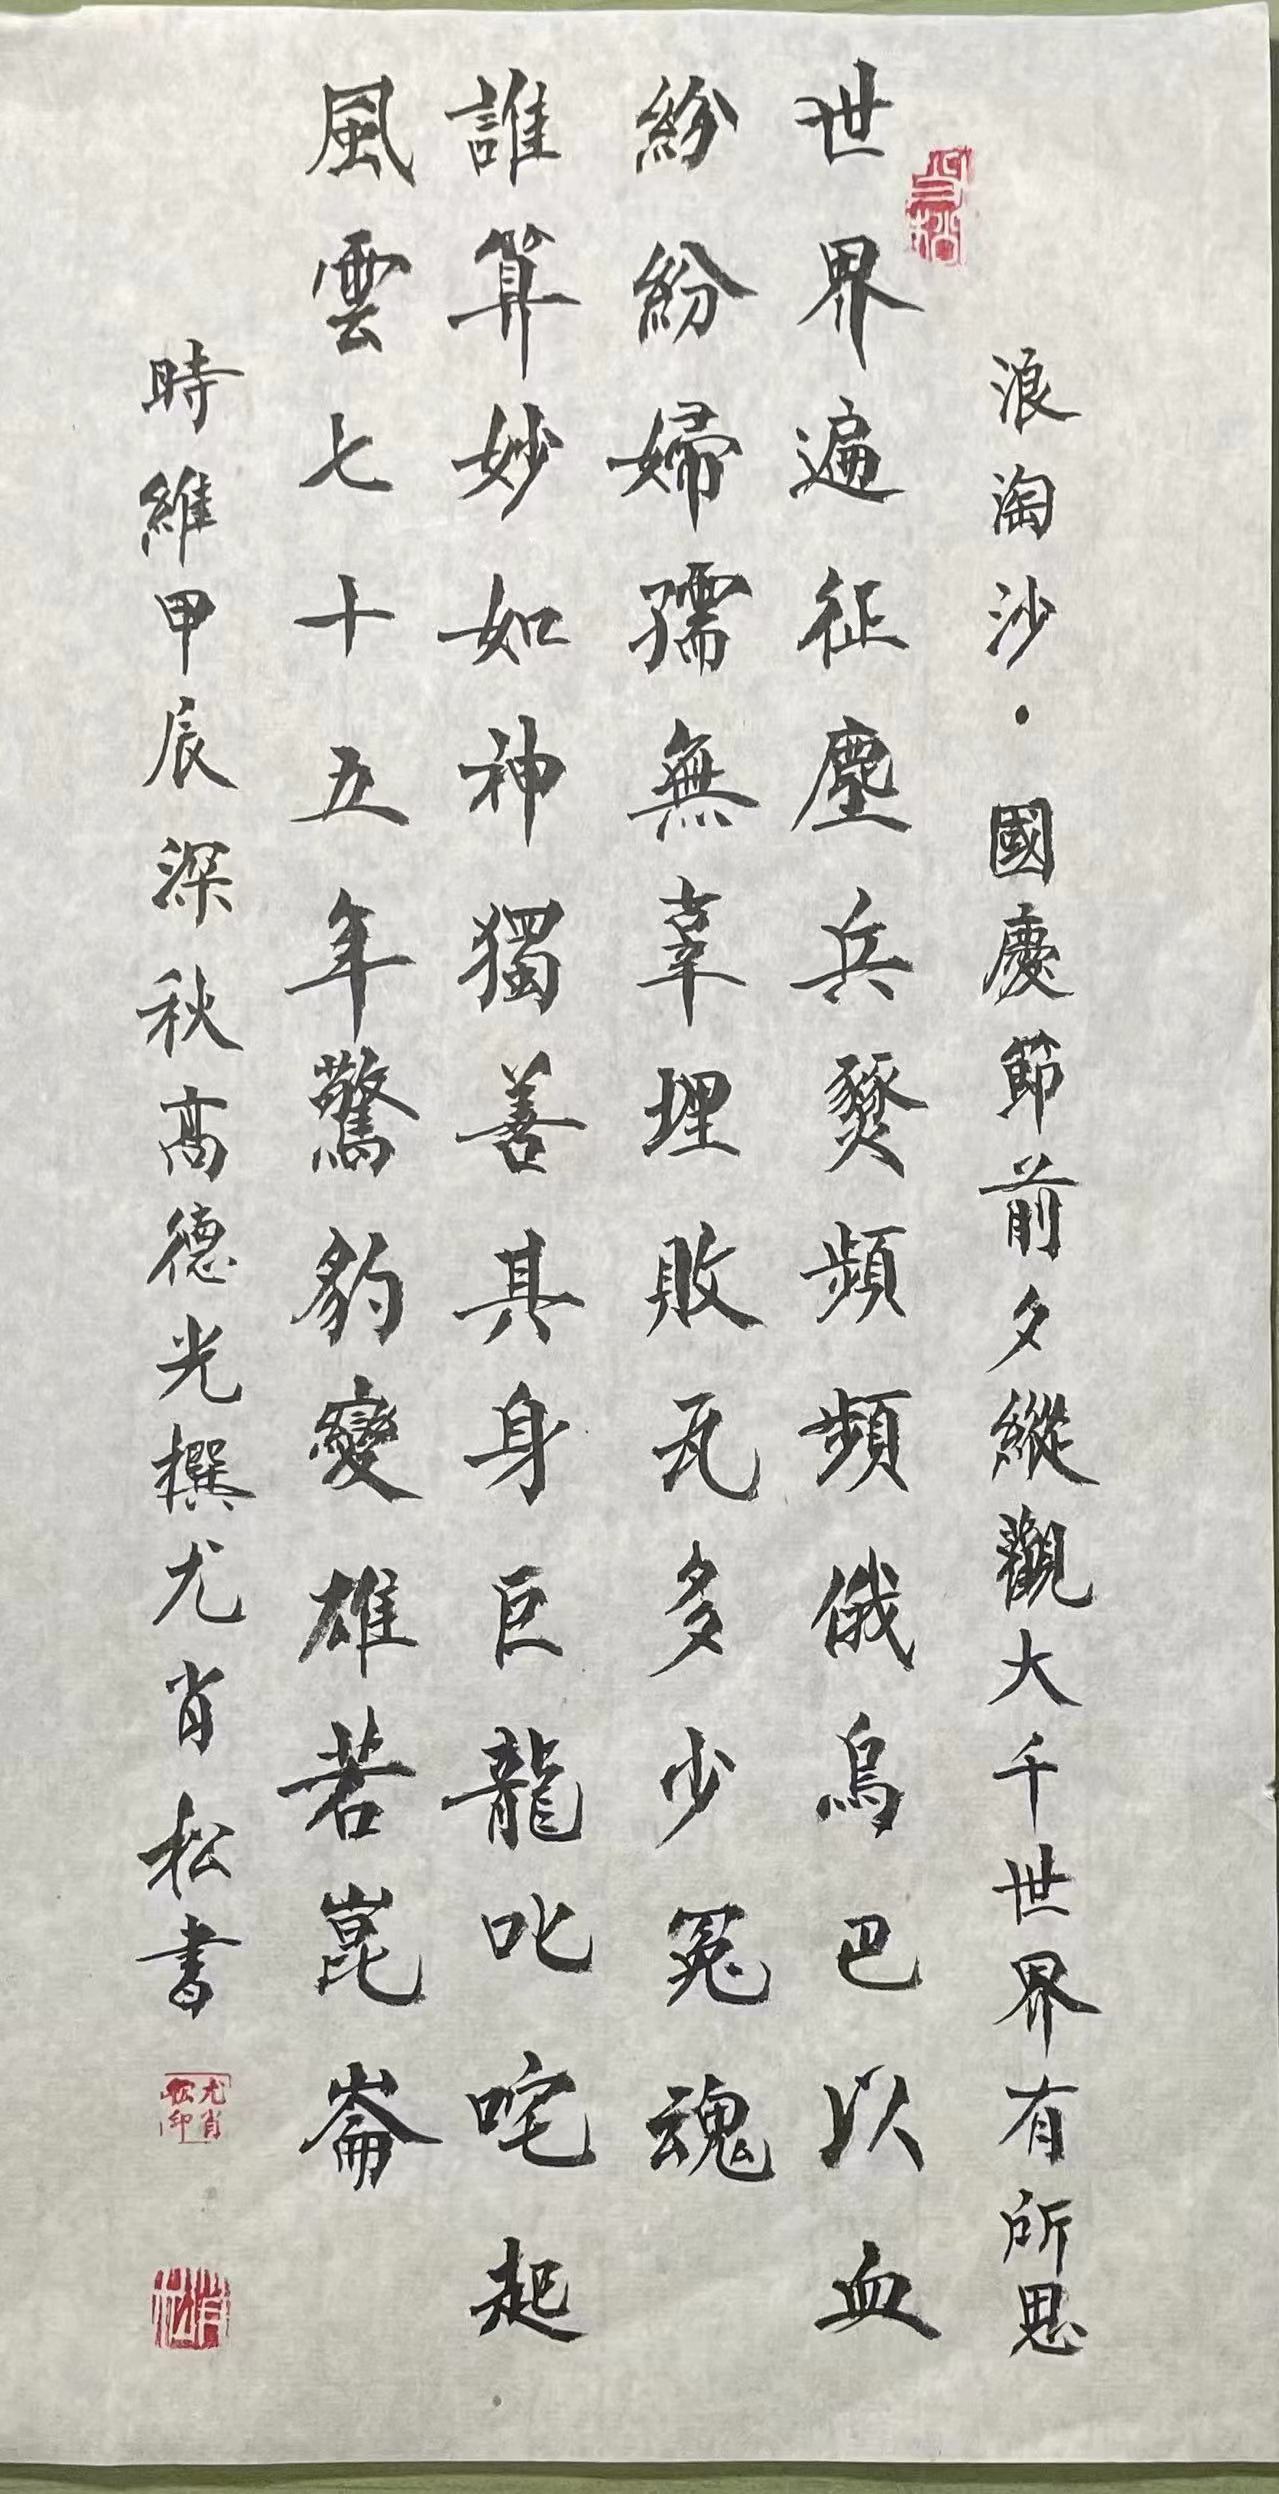 浪淘沙·國慶節前夕縱觀大千世界有所思
世界遍征塵兵燹頻頻俄烏巴以血
紛紛婦孺無辜埋敗瓦多少冤魂
誰算妙如神獨善其身巨龍叱咤起
風雲七十五年驚豹變雄若崑崙
時維甲辰深秋高德光撰尤肖松書
尤肖松印